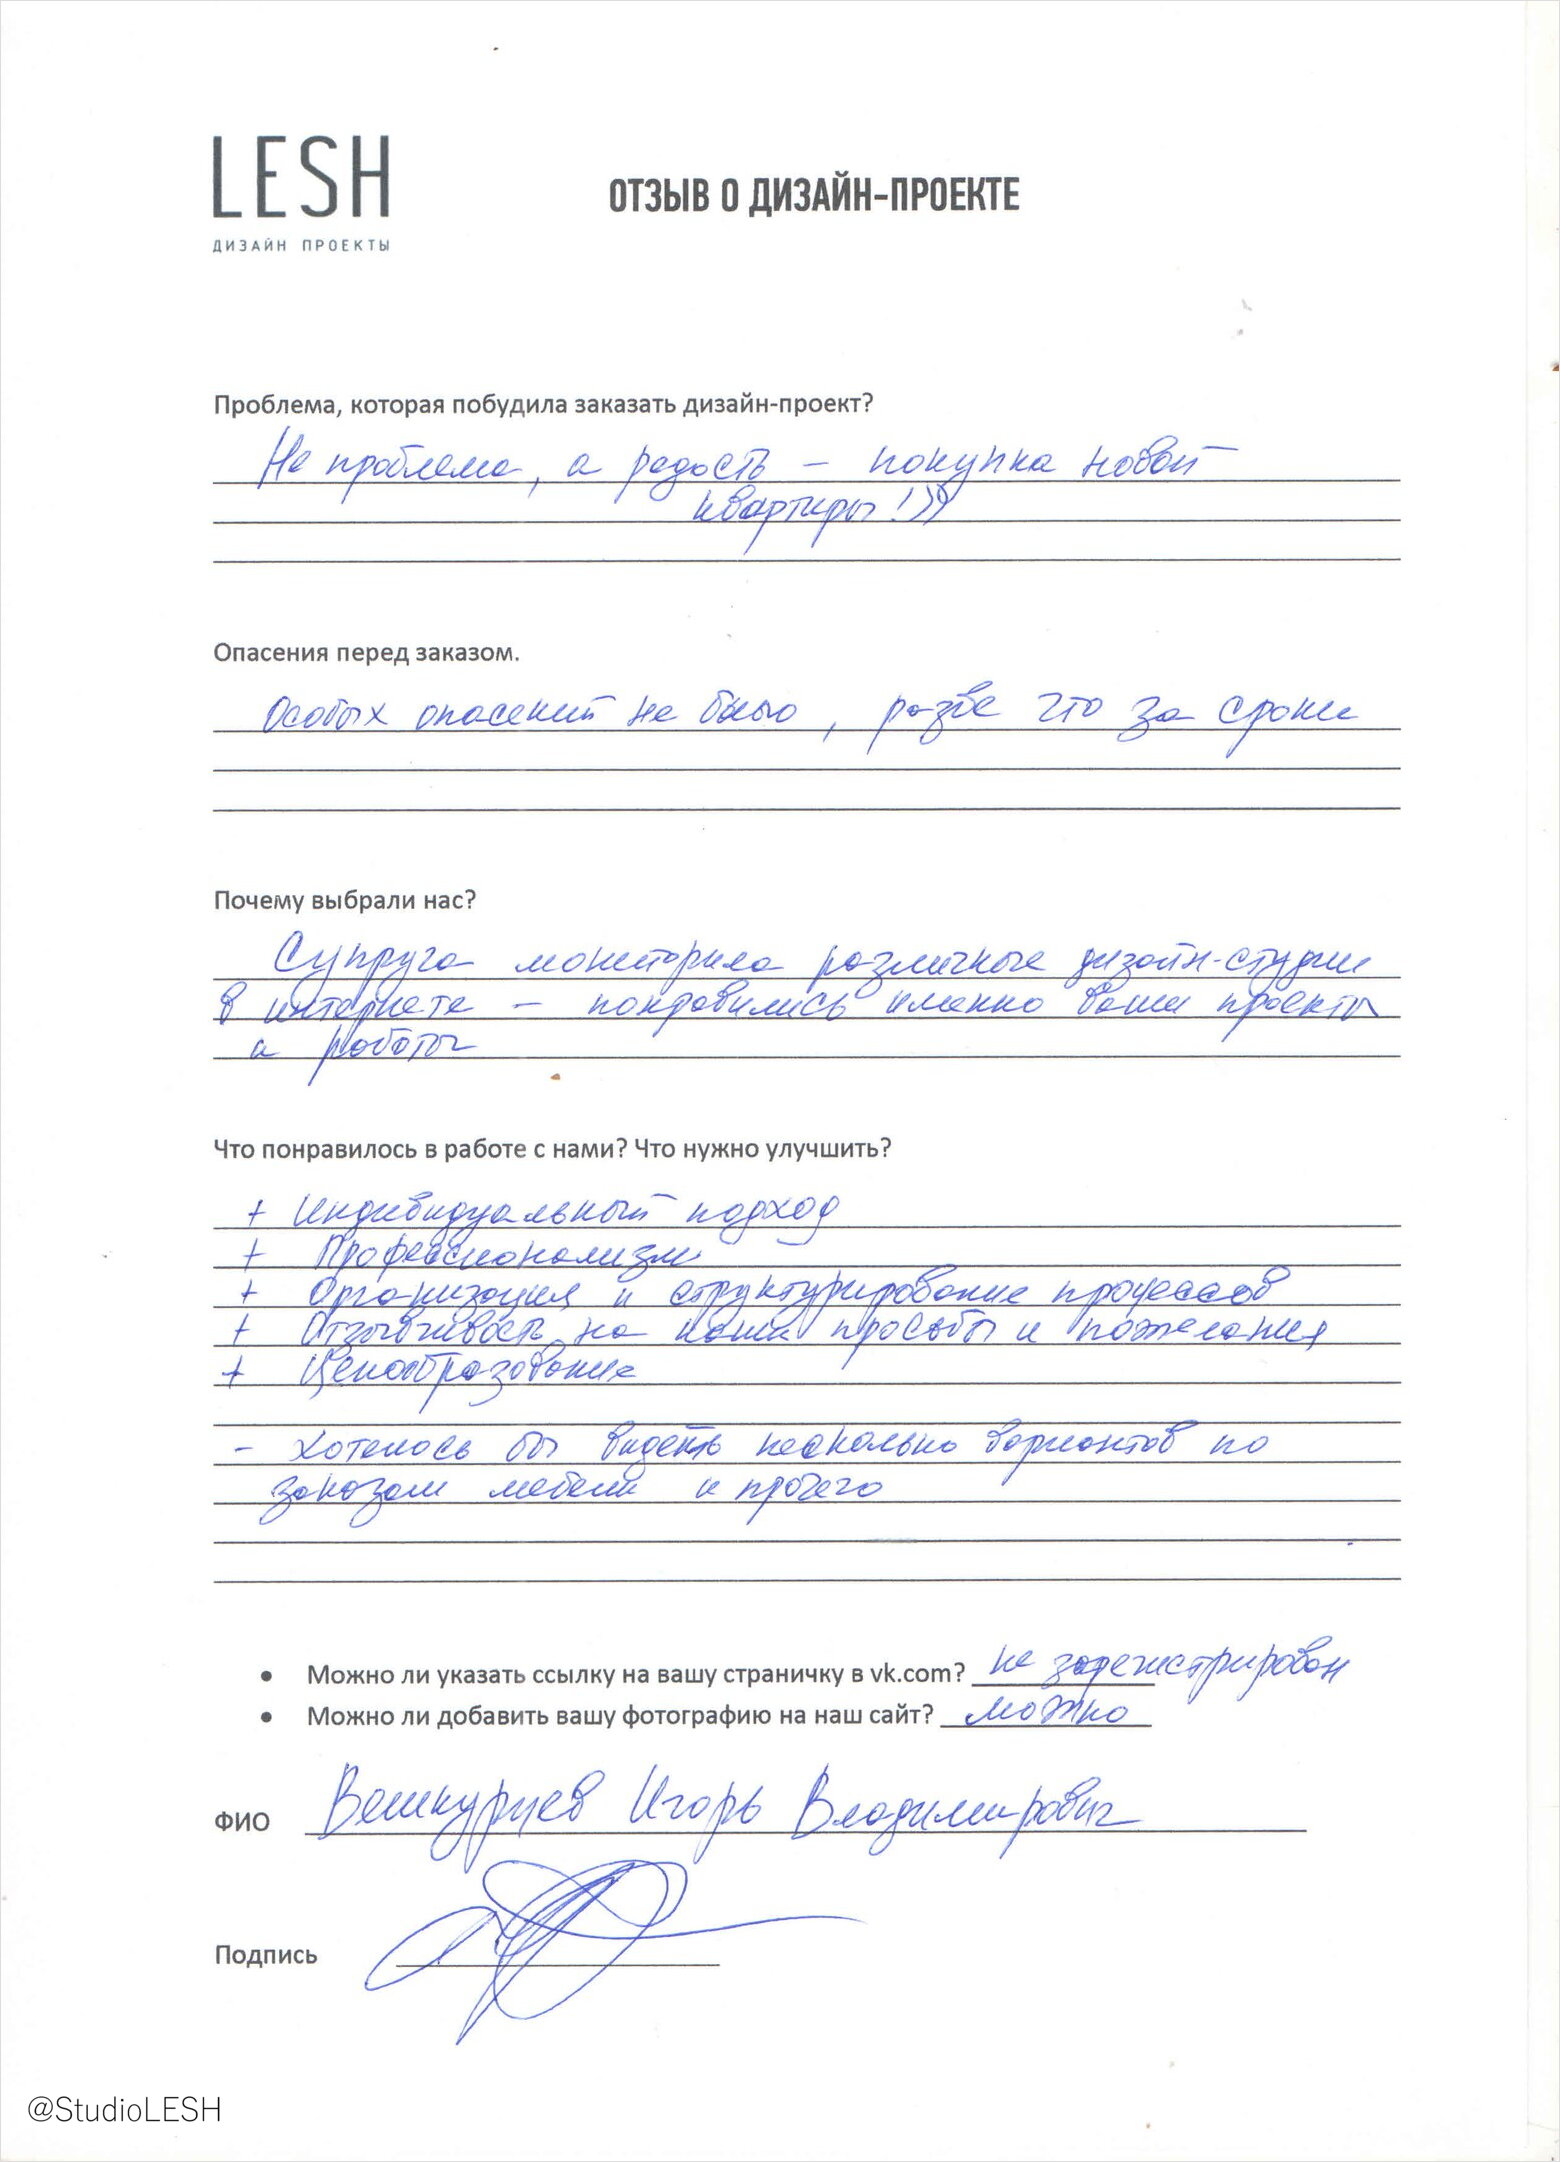 LESH
ДИЗАЙН ПРОЕКТЫ
ОТЗЫВ О ДИЗАЙН-ПРОЕКТЕ
Проблема, которая побудила заказать дизайн-проект?
Не проблема, а радость – покупка новой
квартиры!))
Опасения перед заказом.
Особых опасений не было, разве что за сроки
Почему выбрали нас?
Супруга мониторила различные дизайн-студии
в интернете – понравились именно ваши проекты
и работы
Что понравилось в работе с нами? Что нужно улучшить?
+ Индивидуальный подход
+ Профессионализм
+ Организация и структурирование процессов
+ Отзывчивость на наши просьбы и пожелания
+ Ценообразование
- Хотелось бы видеть несколько вариантов по
заказам мебели и прочего
• Можно ли указать ссылку на вашу страничку в vk.com? не зарегистрирован
• Можно ли добавить вашу фотографию на наш сайт? можно
ФИО Игорь Владимирович
Подпись
@StudioLESH